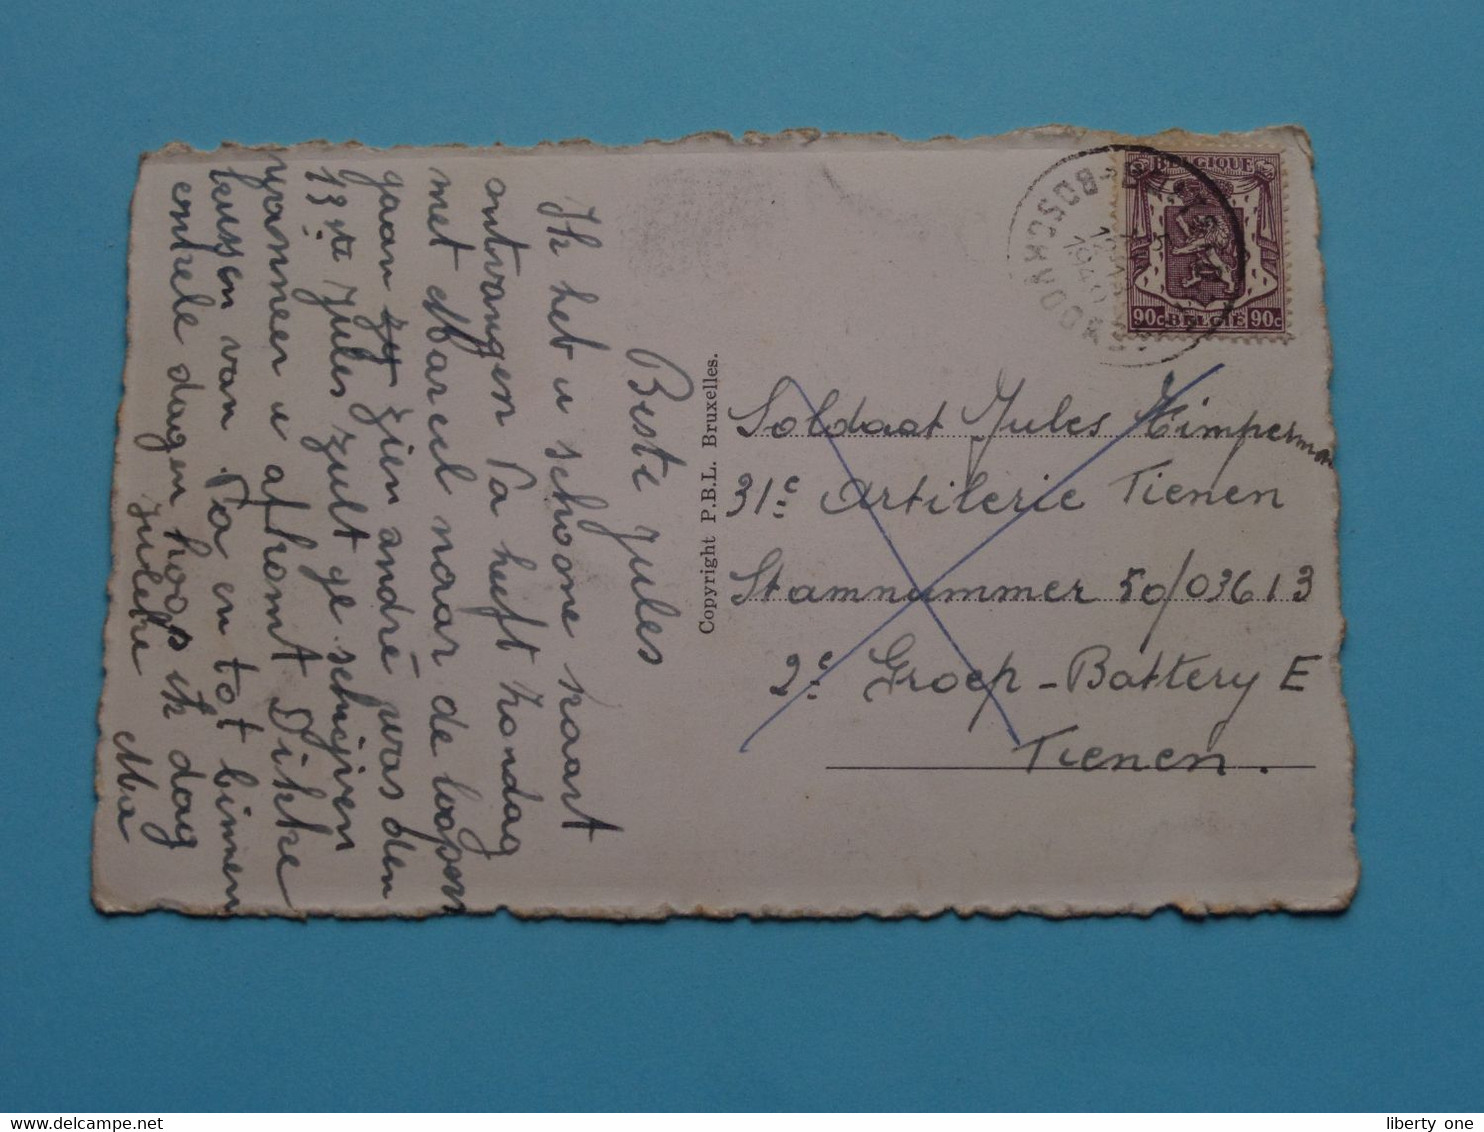 Beste jules
Ik heb u schoone kaart
ontvangen Pa heeft zondag
met Marcel naar de loopen
gaan zien andré was den
13de Jules zult ge schrijven
wanneer u afkomt Dikke
kussen van Pa en tot binnen
enkele dagen hoop ik dag
Juleke Ma
Copyright P.B.L. Bruxelles.
BELGIQUE
90c BELGIE 90c
BOSCHVOORDE
1940
Soldaat Jules Timperman
31e Artilerie Tienen
Stamnummer 50/03613
2e Groep - Battery E
Tienen.
liberty one